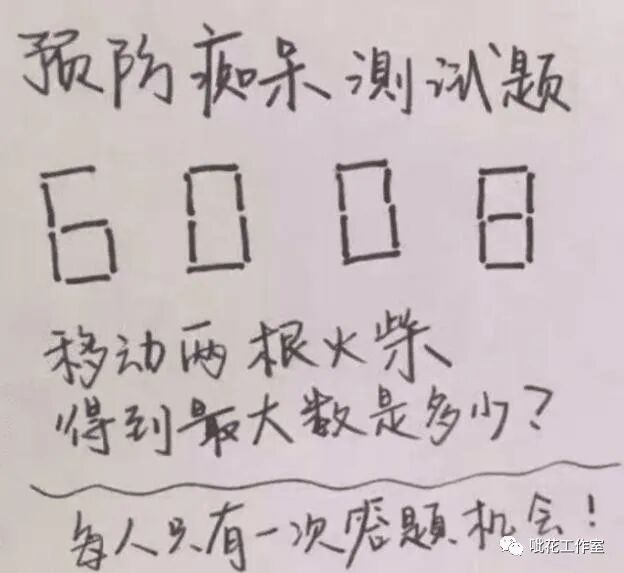 预防痴呆测试题
6008
移动两根火柴
得到最大数是多少?
每人只有一次答题机会!
呲花工作室